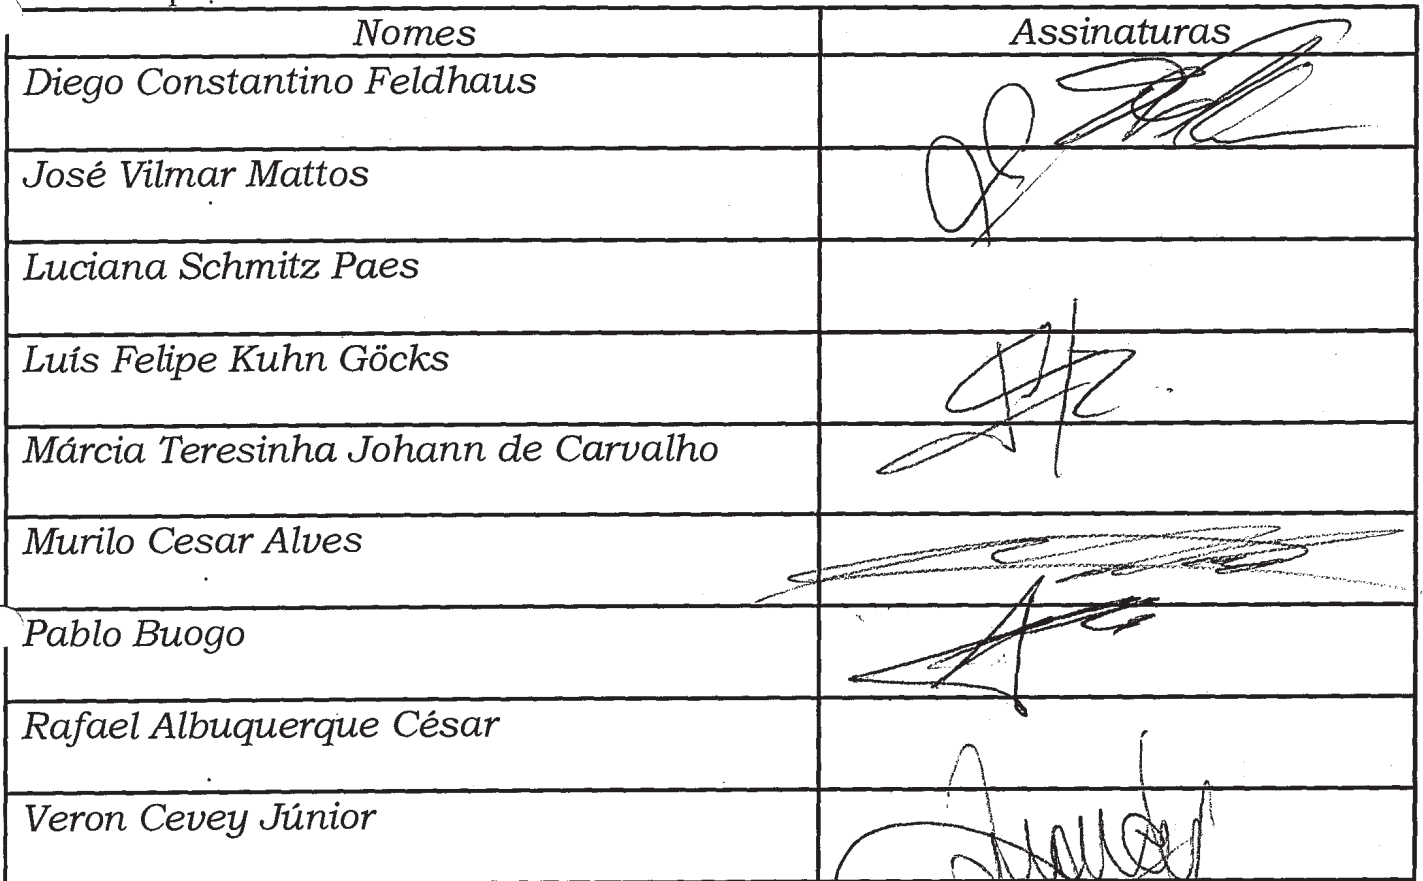 Nomes
Assinaturas
Diego Constantino Feldhaus
José Vilmar Mattos
Luciana Schmitz Paes
Luís Felipe Kuhn Göcks
Márcia Teresinha Johann de Carvalho
Murilo Cesar Alves
Pablo Buogo
Rafael Albuquerque César
Veron Cevey Júnior